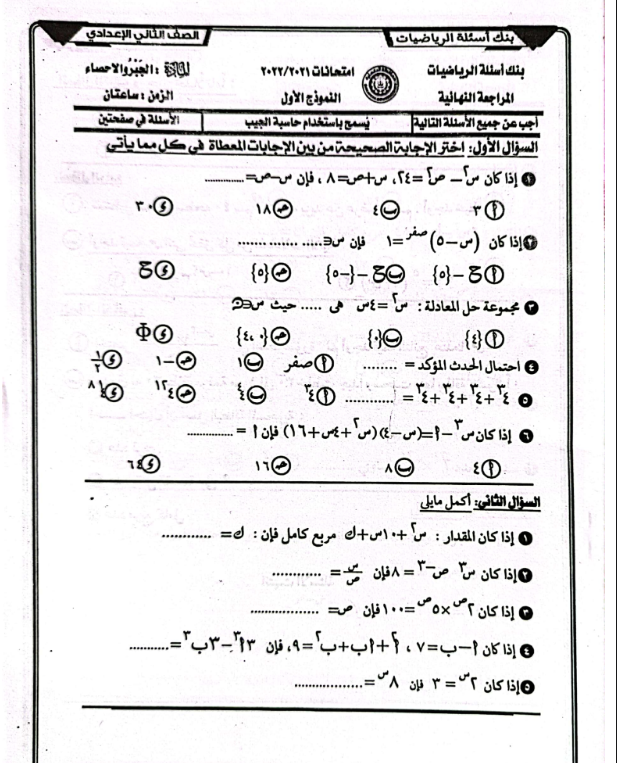 بنك أسئلة الرياضيات
الصف الثاني الإعدادي
بنك أسئلة الرياضيات امتحانات ٢٠٢٢/٢٠٢١ المادة : الجَبْر والاحصاء
المراجعة النهائية النموذج الأول الزمن : ساعتان
أجب عن جميع الأسئلة التالية يُسمح باستخدام حاسبة الجيب الأسئلة في صفحتين
السؤال الأول: اختر الإجابة الصحيحة من بين الإجابات المعطاة في كل مما يأتى
١ إذا كان س٢ – ص٢ = ٢٤، س+ص=٨ ، فإن س-ص= ............
أ ٣ ب ٤ ج ١٨ د ٣٠
٢ إذا كان (س – ٥)صفر = ١ فإن س∈ ..... ........ ........
أ ح – {٥} ب ح – {-٥} ج {٥} د ح
٣ مجموعة حل المعادلة : س٢ = ٤س هى ..... حيث س∈ح
أ {٤} ب {٠} ج {٤،٠} د Φ
٤ احتمال الحدث المؤكد = ........ أ صفر ب ١ ج -١ د ١/٢
٥ ٤٣ + ٤٣ + ٤٣ + ٤٣ = ............ أ ٤٣ ب ٤٤ ج ٤١٢ د ٤٨١
٦ إذا كان س٣ – أ = (س – ٤)(س٢ + ٤س + ١٦) فإن أ = ............
أ ٤ ب ٨ ج ١٦ د ٦٤
السؤال الثانى: أكمل مايلى
١ إذا كان المقدار : س٢ + ١٠س + ك مربع كامل فإن : ك= ............
٢ إذا كان س٣ ص-٣ = ٨ فإن س/ص = ............
٣ إذا كان ٢ص × ٥ص = ١٠٠ فإن ص= ................
٤ إذا كان أ – ب = ٧ ، أ٢ + أب + ب٢ = ٩، فإن ٣أ٣ – ٣ب٣ = ..........
٥ إذا كان ٢س = ٣ فإن ٨س = .................